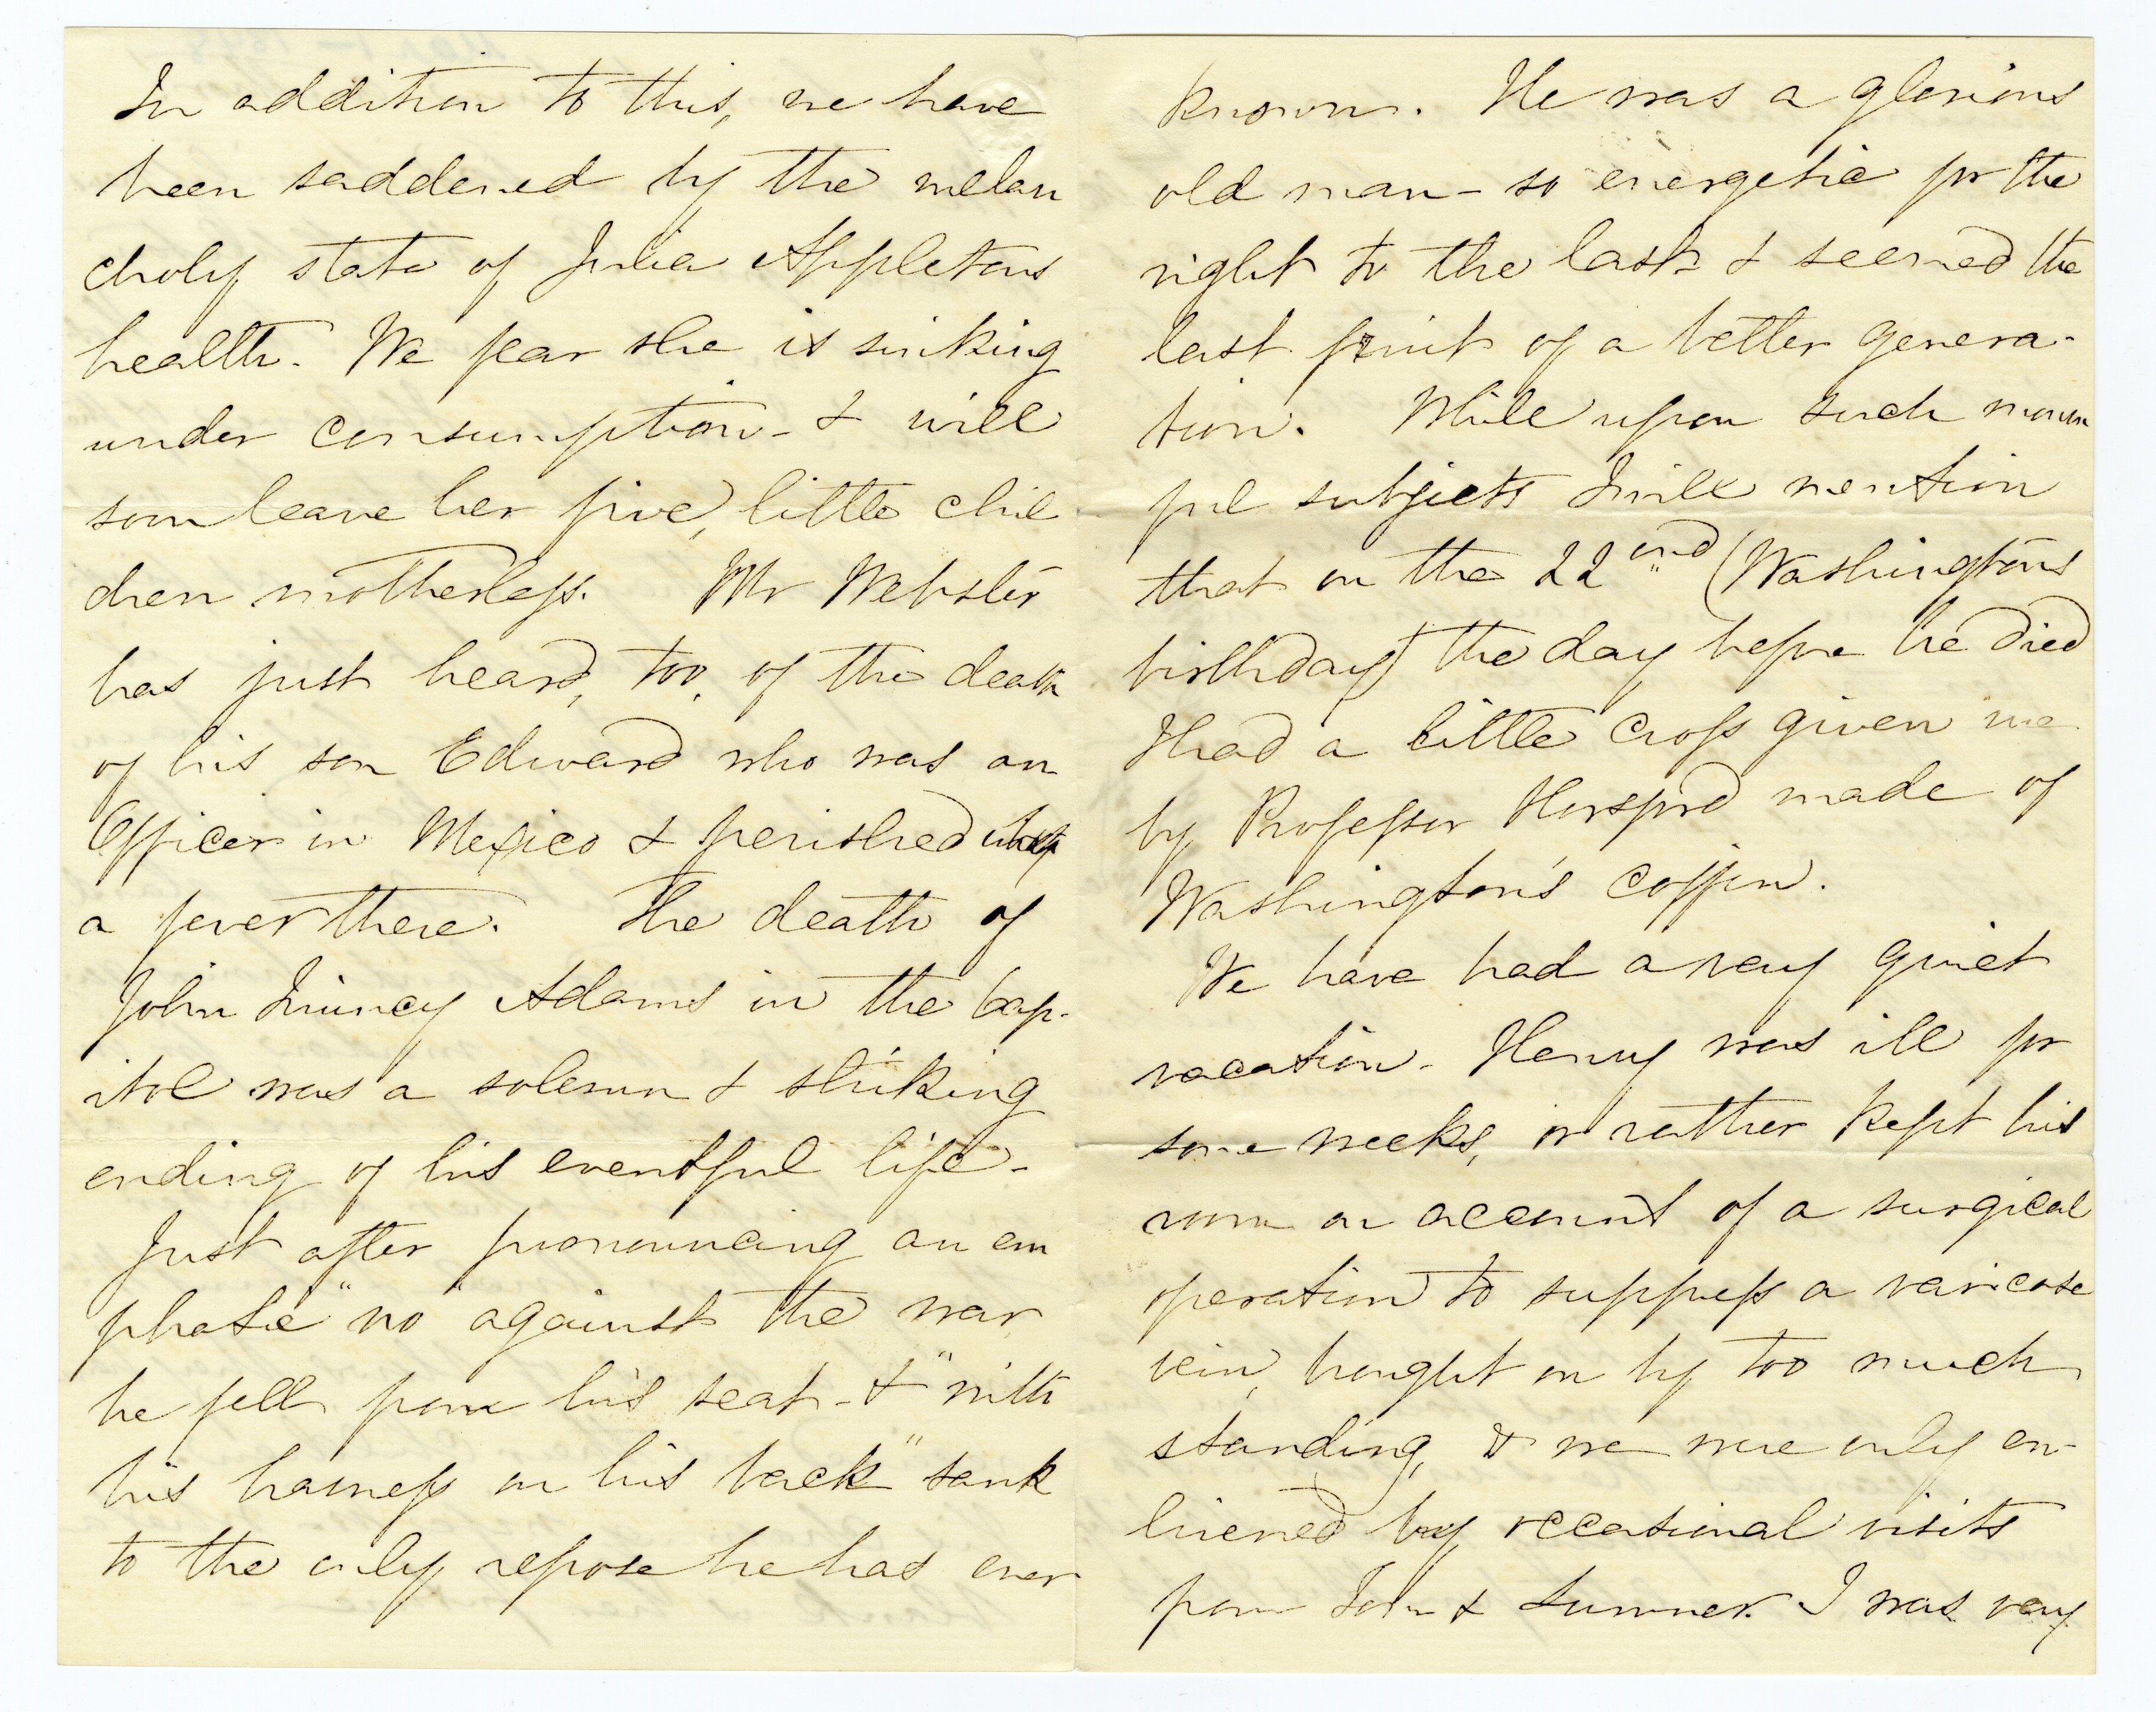 In addition to this, we have
been saddened by the melan
choly state of Julia Appletons
health. We fear she is sinking
under consumption - & will
soon leave her five, little chil
dren motherless. Mr Webster
has just heard, too, of the death
of his son Edward who was an
Officer in Mexico & perished
a fever there. The death of
John Quincy Adams in the Cap-
itol was a solemn & striking
ending of his eventful life -
Just after pronouncing an em
phatic "no" against the war
he fell from his seat - & "with
his harness on his back" sank
to the only repose he has ever
known. He was a glorious
old man - so energetic for the
right to the last & seemed the
last fruit of a better genera-
tion. While upon such mourn
ful subjects I will mention
that on the 22nd (Washington's
birthday) the day before he died
I had a little cross given me
by Professor Horsford made of
Washington's coffin.
We have had a very quiet
vacation - Henry was ill for
some weeks, or rather kept his
room on account of a surgical
operation to suppress a varicose
vein, brought on by too much
standing, & we were only en-
livened by occasional visits
from Tom & Sumner. I was very